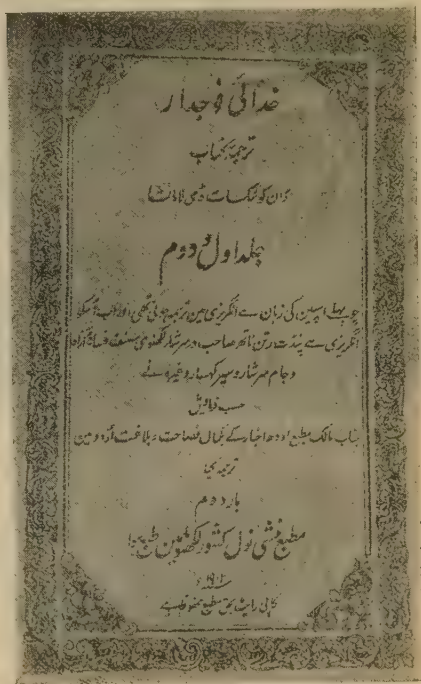 خدائی فوجدار
ترجمہ کتاب
ڈان کوئکسات ڈی لامانشا
جلد اول و دوم
جو پہلے اسپین کی زبان سے انگریزی مین ترجمہ ہوئی تھی اور اب اُسکو
انگریزی سے پنڈت رتن ناتھ صاحب در سرشار لکھنوی مصنف فسانۂ آزاد
و جام سرشار و سیر کہسار وغیرہ نے
حسب فرمایش
جناب مالک مطبع اودھ اخبار کے بکمال فصاحت و بلاغت اُردو مین
ترجمہ کیا
بار دوم
مطبع منشی نول کشور لکھنؤ مین طبع ہوا
سنہ ۱۹۰۳ء
کاپی رائٹ بحق مطبع محفوظ ہے